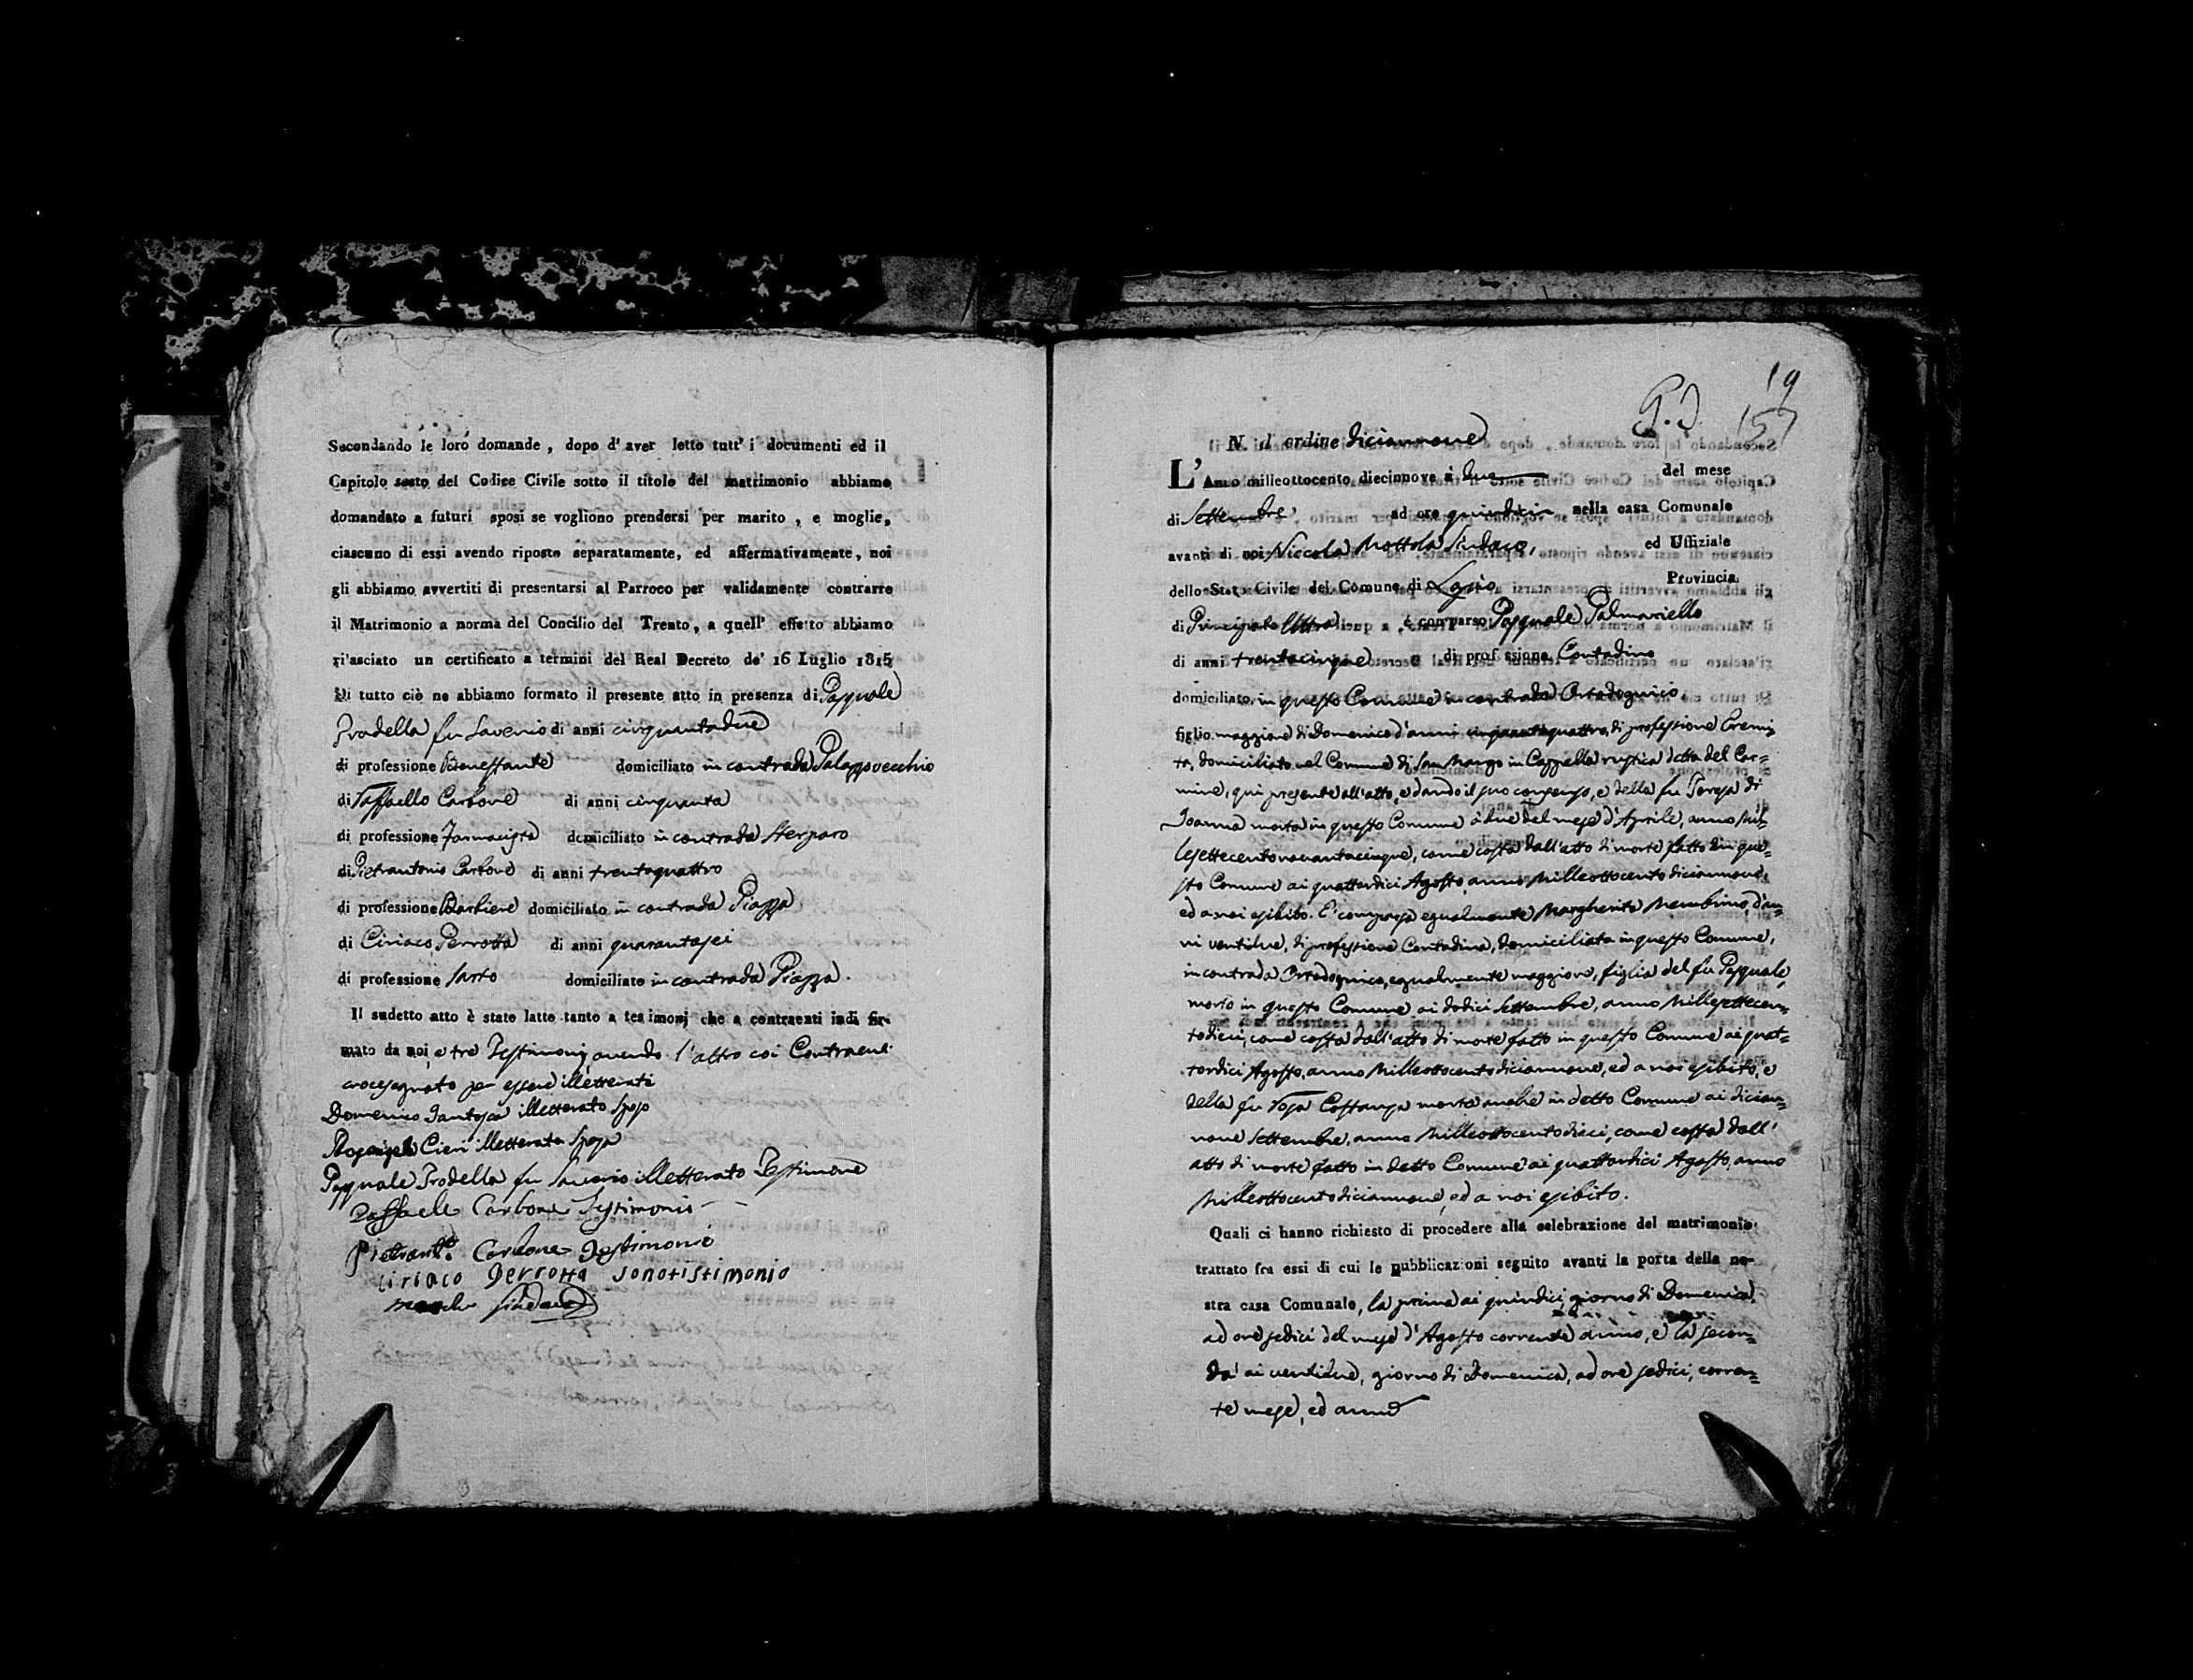 Secondando le loro domande, dopo d'aver letto tutt' i documenti ed il
Capitolo sesto del Codice Civile sotto il titolo del matrimonio abbiamo
domandato a futuri sposi se vogliono prendersi per marito, e moglie,
ciascuno di essi avendo riposto separatamente, ed affermativamente, noi
gli abbiamo avvertiti di presentarsi al Parroco per validamente contrarre
il Matrimonio a norma del Concilio del Trento, a quell' effetto abbiamo
ri'asciato un certificato a termini del Real Decreto de' 16 Luglio 1815
Di tutto ciò ne abbiamo formato il presente atto in presenza di Pasquale
Frodella fu Saverio di anni cinquantadue
di professione Benestante domiciliato in contrada Palazzovecchio
di Raffaello Carbone di anni cinquanta
di professione Farmacista domiciliato in contrada Sterparo
di Pietrantonio Carbone di anni trentaquattro
di professione Barbiere domiciliato in contrada Piazza
di Ciriaco Perrotta di anni quarantasei
di professione Sarto domiciliato in contrada Piazza.
Il sudetto atto è stato latto tanto a testimonj che a contraenti indi fir-
mato da noi e tre Testimonj avendo l'altro coi Contraenti
crocesegnato per essere illetterati
Domenico Santosa illetterato Sposo
Cieri illetterata Sposa
Pasquale Frodella fu Saverio illetterato Testimone
Raffaele Carbone Testimonio
Pietrant.o Carbone Testimonio
Ciriaco Perrotta sono tistimonio
Sindaco
19
157
N. d' ordine diciannove
L'Anno milleottocento diecinnove à due del mese
di Settembre ad ore quindici nella casa Comunale
avanti di noi Niccola Mottola Sindaco, ed Uffiziale
dello Stato Civile del Comune di Provincia
di Principato Ultra è comparso Pasquale Palmariello
di anni trentacinque di professione Contadino
domiciliato in questo Comune in contrada Ortodognico,
figlio maggiore di Domenico d'anni di professione Eremi-
ta, domiciliato nel Comune di San Mango in Cappella rustica detta del Car-
mine, qui presente all'atto, e dando il suo consenso, e della fu Teresa di
Ioanna morta in questo Comune a due del mese d'Aprile, anno Mil-
lesettecentonovantacinque, come costa dall'atto di morte fatto in que-
sto Comune ai quattordici Agosto anno Milleottocentodiciannove,
ed a noi esibito. E' comparsa egualmente Margherita Membrino, d'an-
ni ventidue, di professione Contadina, domiciliata in questo Comune,
in contrada Ortodognico, egualmente maggiore, figlia del fu Pasquale,
morto in questo Comune ai dodici Settembre, anno Millesettecen-
todieci, come costa dall'atto di morte fatto in questo Comune ai quat-
tordici Agosto, anno Milleottocentodiciannove, ed a noi esibito, e
della fu Rosa Costanza morta anche in detto Comune ai dician-
nove Settembre, anno Milleottocentodieci, come costa dall'
atto di morte fatto in detto Comune ai quattordici Agosto, anno
Milleottocentodiciannove, ed a noi esibito.
Quali ci hanno richiesto di procedere alla celebrazione del matrimonio
trattato fra essi di cui le pubblicazioni seguito avanti la porta della no-
stra casa Comunale, la prima ai quindici giorno di Domenica,
ad ore sedici del mese d'Agosto corrente anno, e la secon-
da ai ventidue, giorno di Domenica, ad ore sedici, corren-
te mese, ed anno